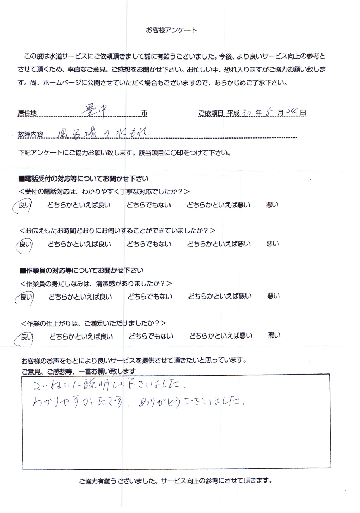 お客様アンケート
この度は水道サービスにご依頼頂きまして誠に有難うございました。今後、より良いサービス向上の参考と
させて頂くため、率直なご意見、ご感想をお聞かせ下さい。お忙しい中、恐れ入りますがご協力お願い致しま
す。尚、ホームページに公開させていただく場合もございますので、あらかじめご了承下さい。
居住地 豊中 市 ご依頼日 平成 30年 5月 日
故障内容 風呂場の水栓
下記アンケートにご協力お願い致します。該当項目に〇印をつけて下さい。
■電話受付の対応等についてお聞かせ下さい
<受付の電話対応は、わかりやすく丁寧な対応でしたか？>
良い どちらかといえば良い どちらでもない どちらかといえば悪い 悪い
<お伝えしたお時間どおりにお伺いすることができていましたか？>
良い どちらかといえば良い どちらでもない どちらかといえば悪い 悪い
■作業員の対応等についてお聞かせ下さい
<作業員の身にしなみは、清潔感がありましたか？>
良い どちらかといえば良い どちらでもない どちらかといえば悪い 悪い
<作業の仕上がりは、ご満足いただけましたか？>
良い どちらかといえば良い どちらでもない どちらかといえば悪い 悪い
お客様のお声をもとにより良いサービスを提供させて頂きたいと思っています。
ご意見、ご感想等、一言お願い致します
ていねいに説明して下さいました。
わかりやすかったです。ありがとうございました。
ご協力有難うございました。サービス向上の参考にさせて頂きます。